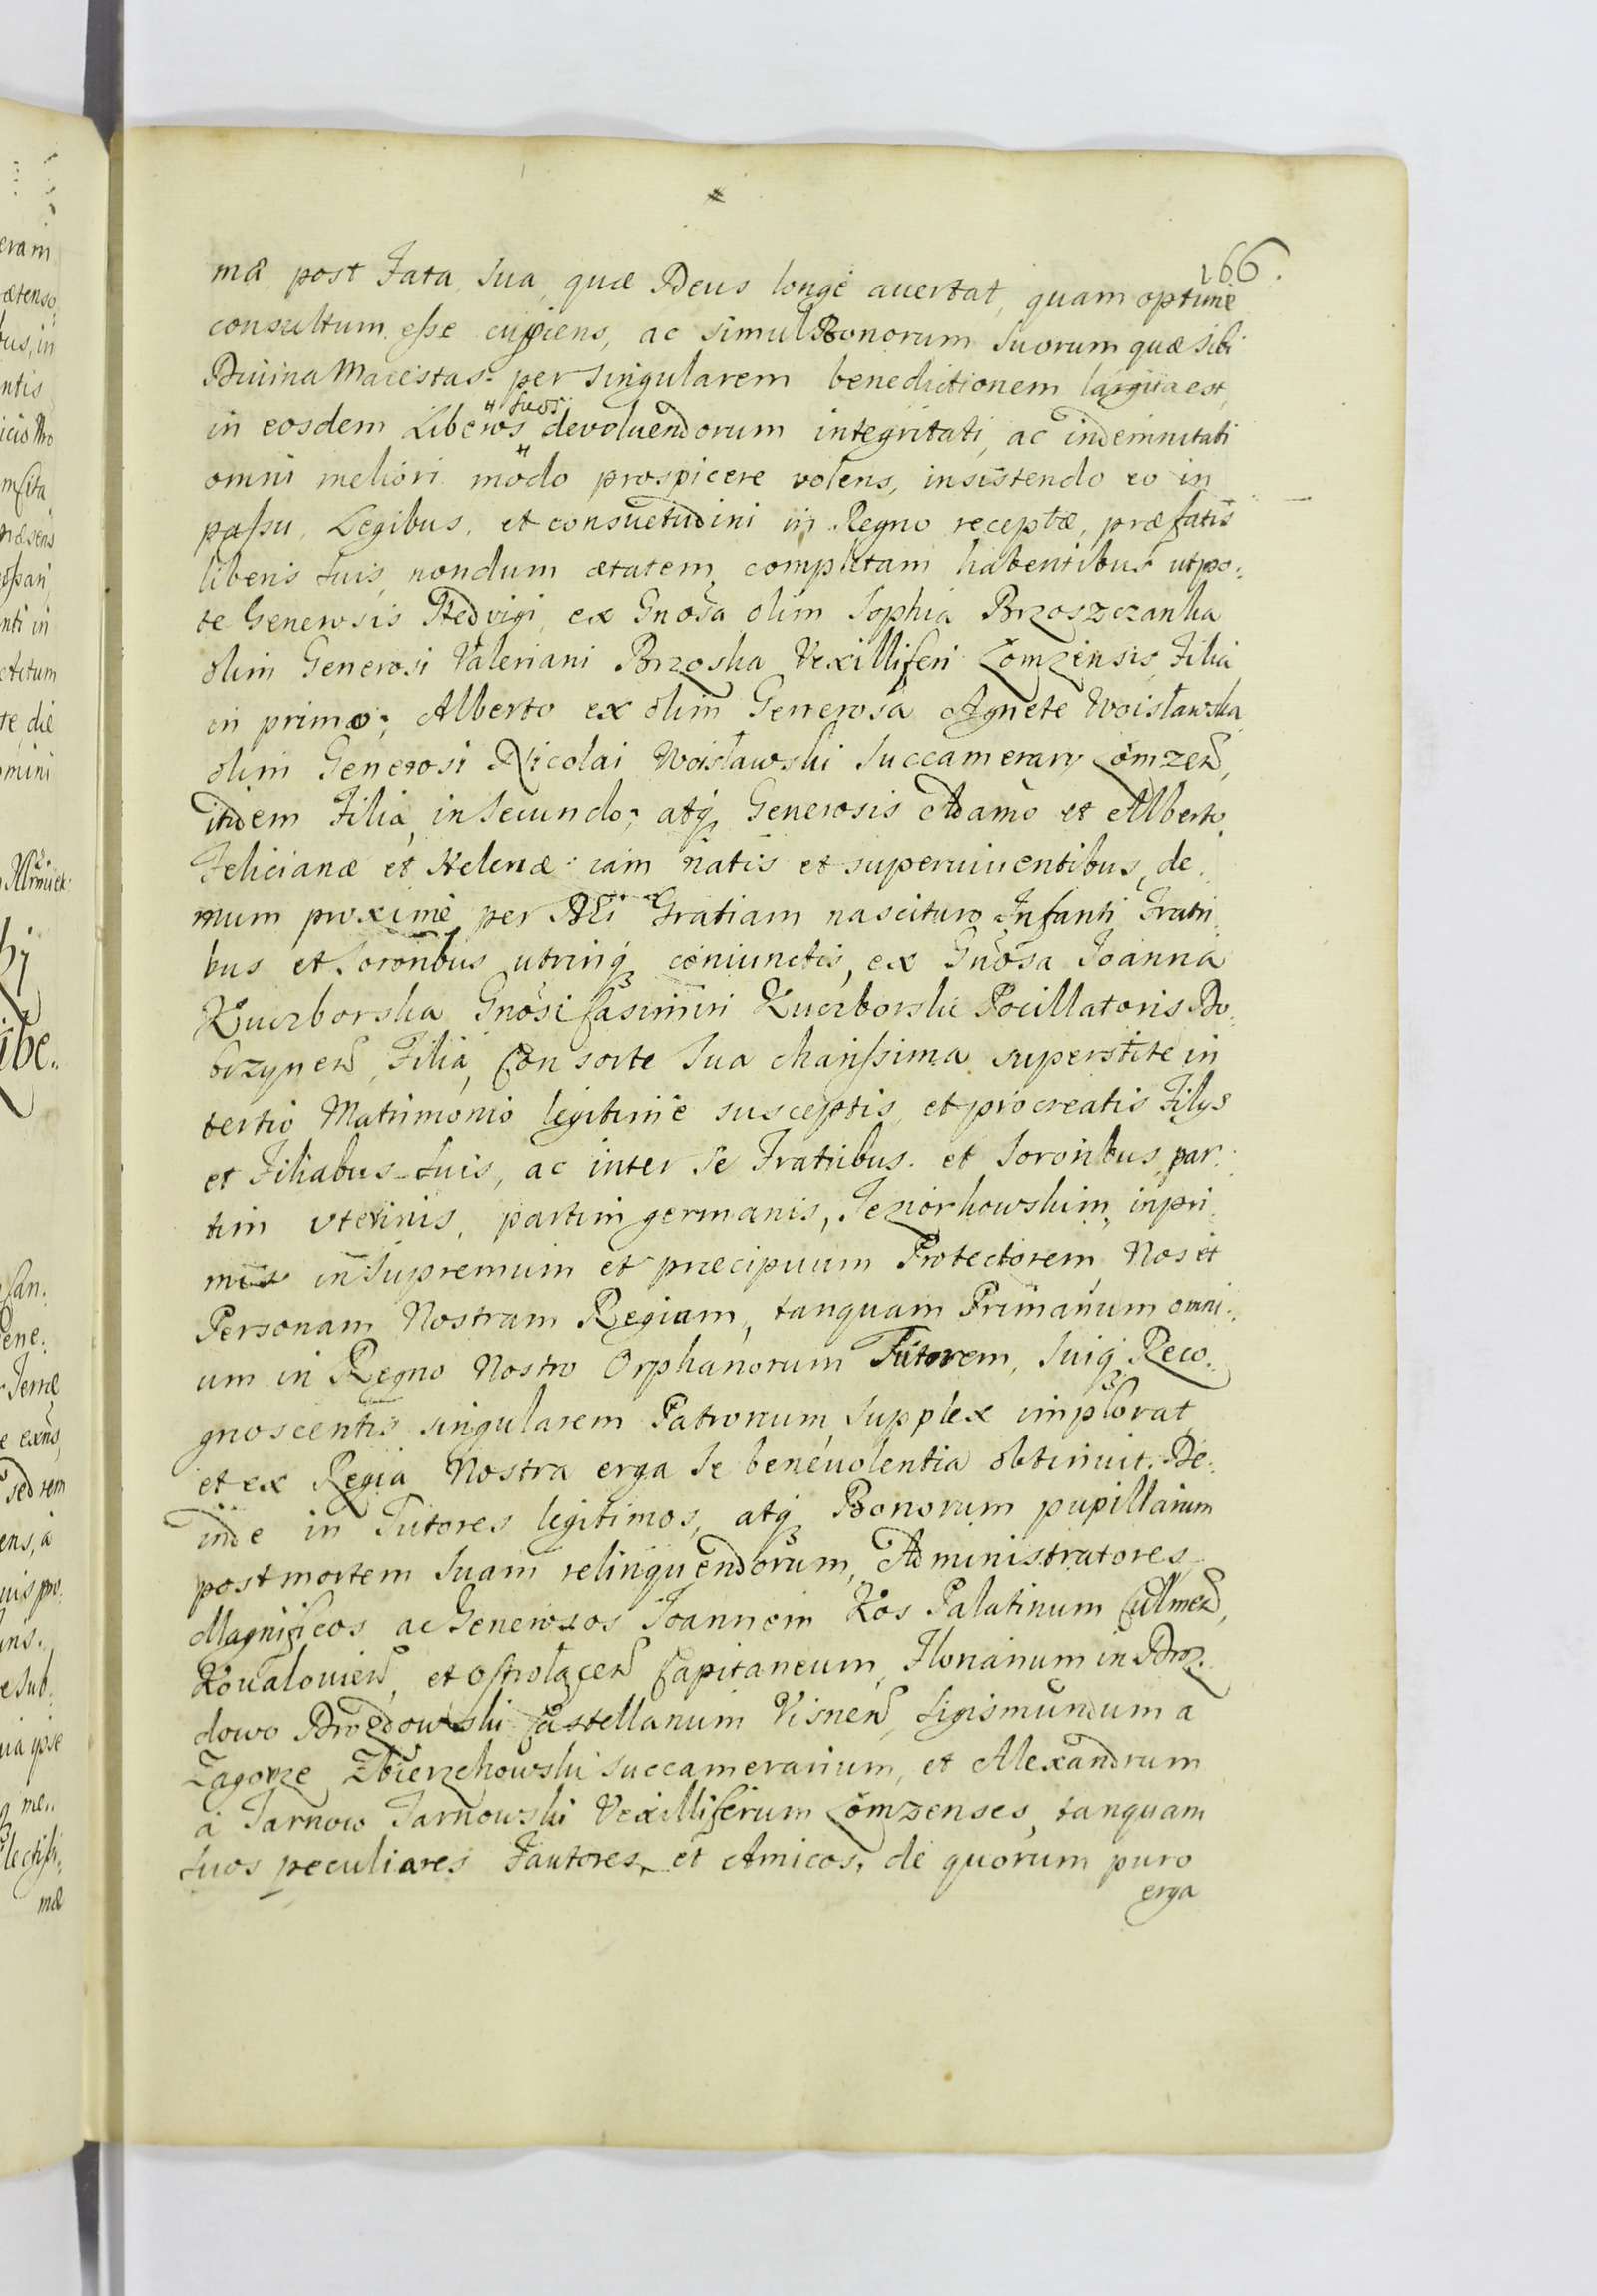 166.
mæ post Fata Sua, quæ Deus longè auertat, quam optimè
consultum esse cupiens, ac simul Bonorum Suorum quæ sibi
Diuina Maiestas per singularem benedictionem largita est,
suos
in eosdem Liberos devoluendorum integritati, ac indemnitati
omni meliori modo prospicere volens, insistendo eo in
passu, Legibus, et consuetudini in Regno receptæ, præfatis
liberis suis, nondum ætatem completam habentibus utpo:
te Generosis Hedvigi, ex Gnosa olim Sophia Brzoszczanka
olim Generosi Valeriani Brzoska Vexilliferi Łomzensis, Filia
in primo; Alberto ex olim Generosa Agnete Woisławska
olim Generosi Nicolai Woisławski Succamerary Łomzen,
itidem Filia, in secundo; atq Generosis Adamo et Alberto,
Felicianæ et Helenæ iam natis et superuiuentibus, de
mum proximè per DEi Gratiam nascituro Infanti, Fratri
bus et Sororibus utrinq coniunctis, ex Gnosa Joanna
Kuczborska Gnosi Casimiri Kuczborski Pocillatoris Do:
brzynen, Filia, Consorte Sua charissima superstite in
tertio Matrimonio legitimè susceptis, et procreatis Filys
et Filiabus suis, ac inter se Fratribus et Sororibus par:
tim uterinis, partim germanis, Jeziorkowskim, inpri:
mis in Supremum et præcipuum Protectorem, Nos et
Personam Nostram Regiam, tanquam Primarium omni:
um in Regno Nostro Orphanorum Tutorem, Suiq Reco:
gnoscentis singularem Patronum, Supplex implorat,
et ex Regia Nostra erga se beneuolentia obtinuit. De:
inde in Tutores legitimos, atq Bonorum pupillarium
post mortem Suam relinquendorum, Administratores
Magnificos ac Generosos Joannem Kos Palatinum Culmen,
Kovalovien, et Ostrołęcen Capitaneum, Florianum in Droz
dowo Drozdowski Castellanum Visnen, Sigismundum a
Zagorze Zbierzchowski Succamerarium, et Alexandrum
à Tarnow Tarnowski Vexilliferum Łomzenses, tanquam
suos peculiares Fautores, et Amicos, de quorum puro
erga